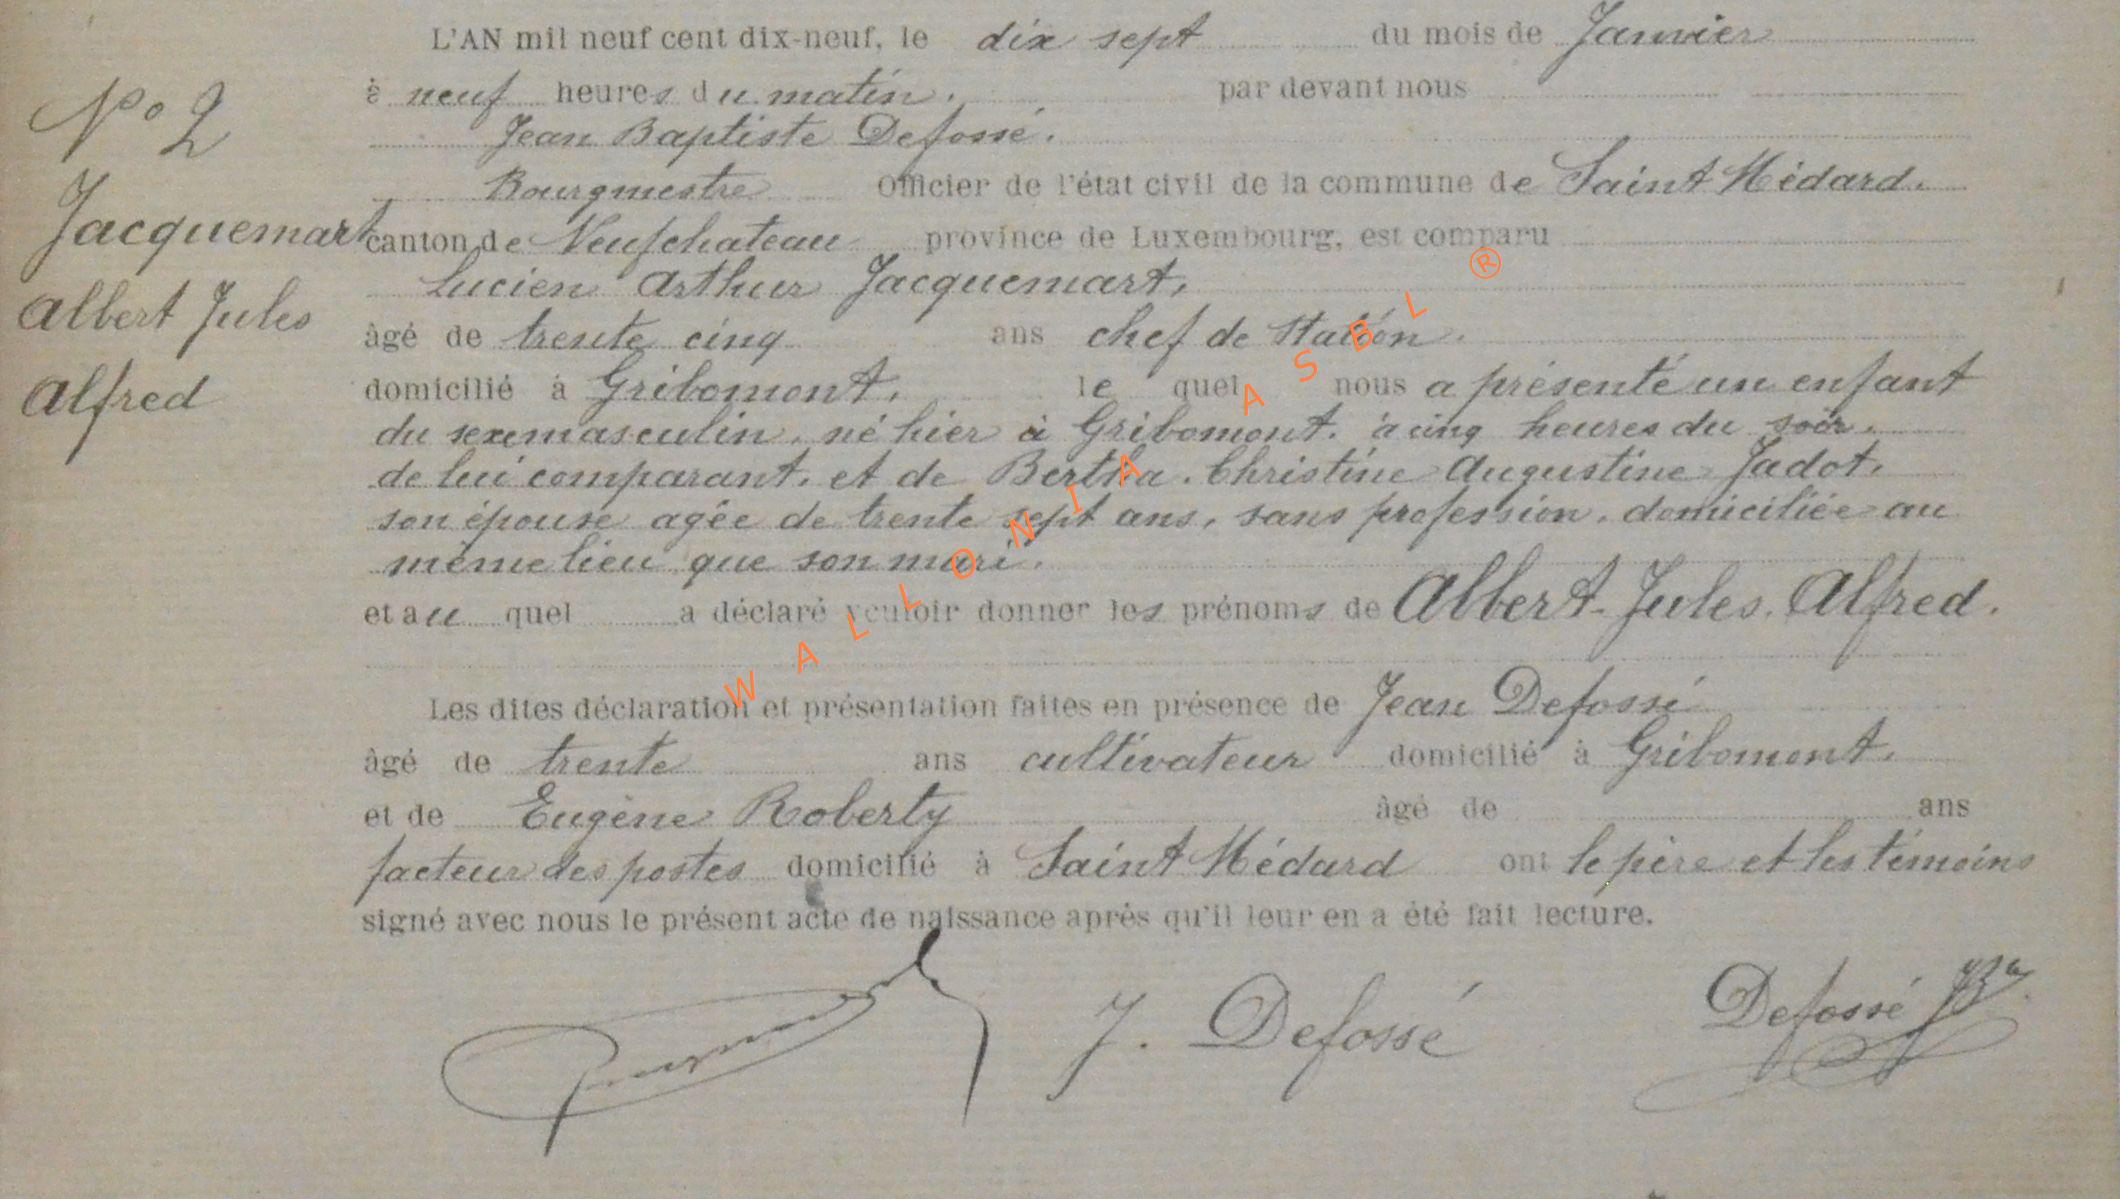 L'AN mil neuf cent dix-neuf, le dix sept du mois de Janvier
à neuf heures du matin. par devant nous
Jean Baptiste Defossé.
Bourgmestre Officier de l'état civil de la commune de Saint Médard.
canton de Neufchateau province de Luxembourg, est comparu
Lucien Arthur Jacquemart,
âgé de trente cinq ans chef de Station.
domicilié à Gribomont, le quel nous a présenté un enfant
du sexe masculin, né hier à Gribomont. à cinq heures du soir.
de lui comparant, et de Bertha. Christine Augustine Jadot.
son épouse agée de trente sept ans, sans profession, domiciliée au
même lieu que son mari.
et au quel a déclaré vouloir donner les prénoms de Albert-Jules. Alfred.
Les dites déclaration et présentation faites en présence de Jean Defossé
âgé de trente ans cultivateur domicilié à Gribomont.
et de Eugène Roberty âgé de ans
facteur des postes domicilié à Saint Médard ont le père et les témoins
signé avec nous le présent acte de naissance après qu'il leur en a été fait lecture.
J. Defossé
Defossé JBte
No 2
Jacquemart
Albert Jules
Alfred
WALLONIA ASBL ®